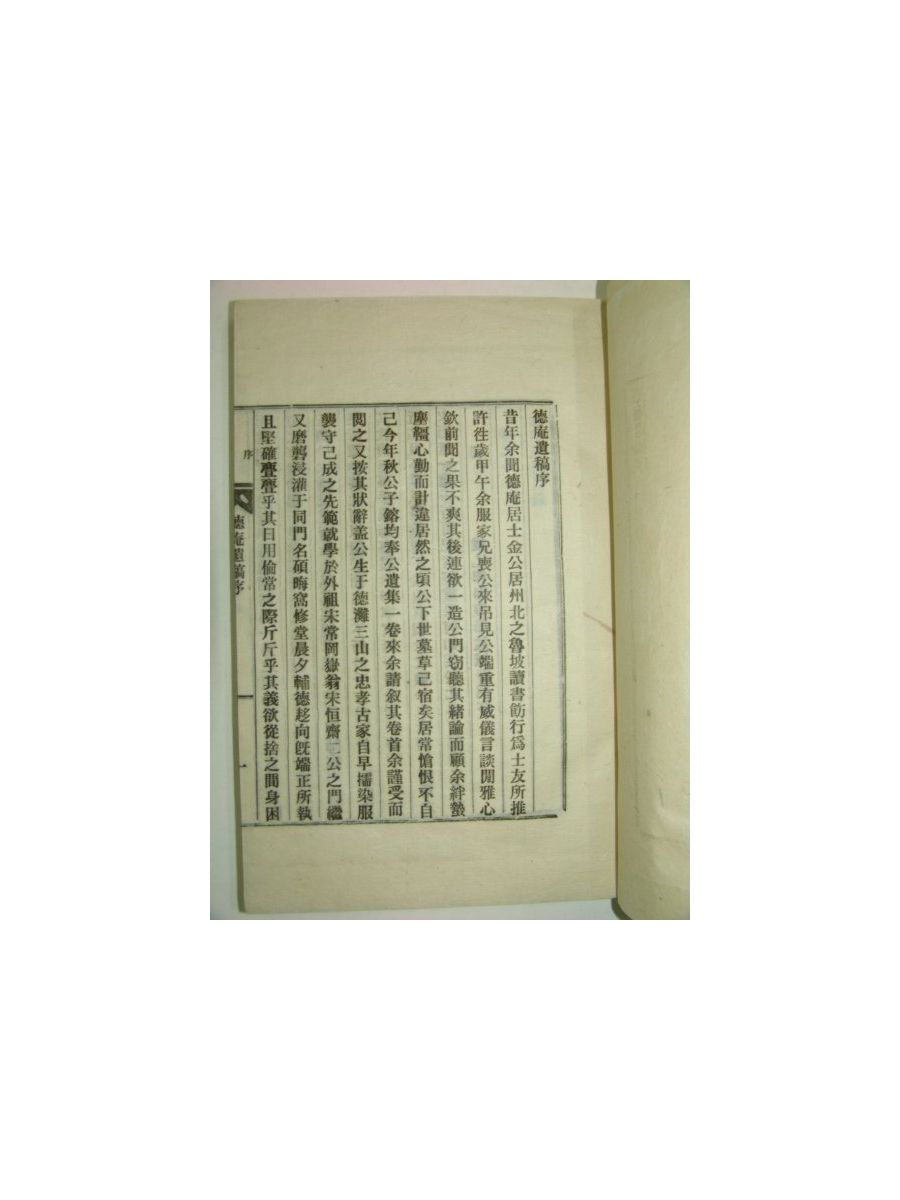 德庵遺稿序
昔年余聞德庵居士金公居州北之魯坡讀書飭行爲士友所推
許徃歲甲午余服家兄喪公來吊見公端重有威儀言談閒雅心
欽前聞之果不爽其後連欲一造公門窃聽其緖論而顧余絆蟄
塵韁心勤而計違居然之頃公下世墓草已宿矣居常愴恨不自
己今年秋公子鎔均奉公遺集一卷來余請叙其卷首余謹受而
閲之又按其狀辭盖公生于德灘三山之忠孝古家自早擩染服
襲守己成之先範就學於外祖宋常岡嶽翁宋恒齋二公之門繼
又磨礲浸灌于同門名碩晦窩修堂晨夕輔德趍向旣端正所執
且堅確亹亹乎其日用倫常之際斤斤乎其義欲從捨之間身困
序
德庵遺稿序
一